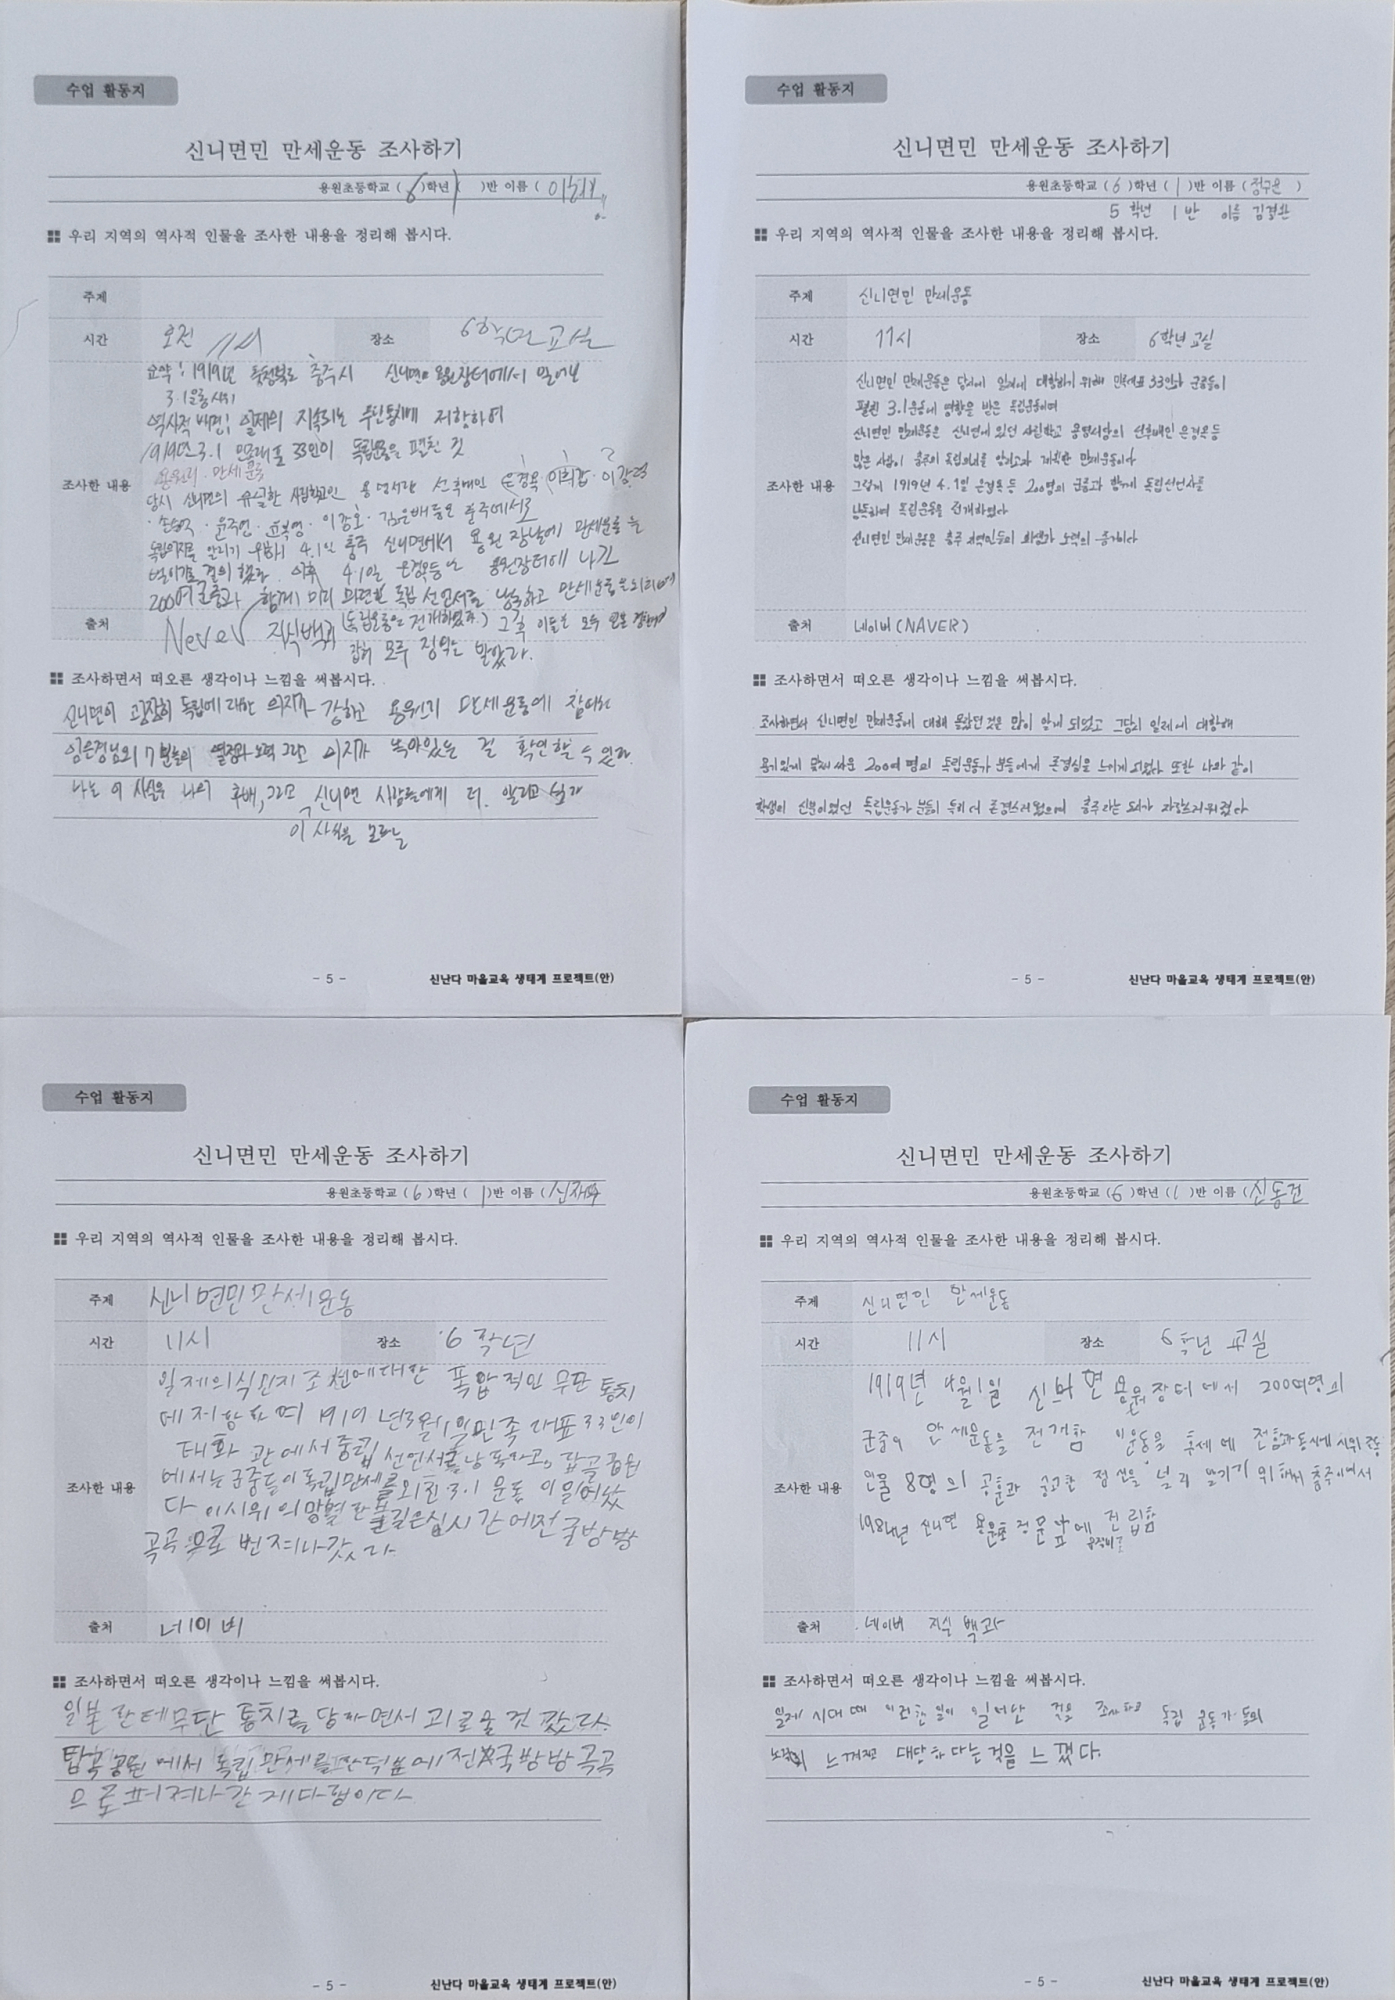 수업 활동지
신니면민 만세운동 조사하기
용원초등학교 ( 6 )학년 ( )반 이름 (
우리 지역의 역사적 인물을 조사한 내용을 정리해 봅시다.
주제
시간 오전 11시 장소 6학년 교실
조사한 내용
요약: 1919년 충청북도 충주시 신니면 용원장터에서 일어난
3·1운동 시위
역사적 배경: 일제의 지속되는 무단통치에 저항하여
1919년 3.1 민족대표 33인이 독립운동을 펼친 것
용원리 만세운동
당시 신니면의 유일한 사립학교인 용명서당 선후배인 은경옥 이희갑·이강렴
·손승억·윤주영·윤복영·이종호·김은배 등은 충주에서도
독립의지를 알리기 위하여 4.1일 충주 신니면에서 용원 장날에 만세운동을
벌이기로 결의했다. 이후 4.1일 은경옥 등은 용원장터에 나간
200여 군중과 함께 미리 마련한 독립 선언서를 낭독하고 만세운동을 외치며
(독립운동을 전개하였다.) 그 후 이들은 모두 일본 경찰에
잡혀 모두 징역을 받았다.
출처 Never 지식백과
조사하면서 떠오른 생각이나 느낌을 써봅시다.
신니면이 굉장히 독립에 대한 의지가 강하고 용원리 만세운동에 참여한
7분들의 열정과 노력 그리고 의지가 녹아있는 걸 확인할 수 있다.
나는 이 사실을 나의 후배, 그리고 신니면 사람들에게 더 알리고 싶다
이 사실을 모르는
- 5 -
신난다 마을교육 생태계 프로젝트(안)
수업 활동지
신니면민 만세운동 조사하기
용원초등학교 ( 6 )학년 ( 1 )반 이름 ( 정구윤 )
5 학년 1 반 이름 김경환
우리 지역의 역사적 인물을 조사한 내용을 정리해 봅시다.
주제 신니면민 만세운동
시간 11시 장소 6학년 교실
조사한 내용
신니면민 만세운동은 당시에 일제에 대항하기 위해 민족대표 33인과 군중들이
펼친 3.1운동에 영향을 받은 독립운동이며
신니면민 만세운동은 신니면에 있던 사립학교 용명서당의 선후배인 은경옥 등
많은 사람이 충주의 독립의지를 알리고자 계획한 만세운동이다
그렇게 1919년 4.1일 은경옥 등 200명의 군중과 함께 독립선언서를
낭독하며 독립운동을 전개하였다
신니면민 만세운동은 충주 지역민들의 희생과 노력의 증거이다
출처 네이버(NAVER)
조사하면서 떠오른 생각이나 느낌을 써봅시다.
조사하면서 신니면민 만세운동에 대해 몰랐던 것을 많이 알게 되었고 그당시 일제에 대항해
용기있게 맞서 싸운 200여 명의 독립운동가 분들에게 존경심을 느끼게 되었다 또한 나와 같이
학생이 신분이었던 독립운동가 분들이 특히 더 존경스러웠으며 충주라는 도시가 자랑스러워졌다
- 5 -
신난다 마을교육 생태계 프로젝트(안)
수업 활동지
신니면민 만세운동 조사하기
용원초등학교 ( 6 )학년 ( 1 )반 이름 (
우리 지역의 역사적 인물을 조사한 내용을 정리해 봅시다.
주제 신니면민만세운동
시간 11시 장소 6학년
조사한 내용
일제의식민지 조선에대한 폭압적인 무단 통치
에 저항하며 1919년3월1일민족 대표33인이
태화관에서 독립 선언서를낭독하고, 탑골공원
에서는군중들이독립만세를외친3.1 운동이일어났
다 이시위의 시간에전국방방
곡곡으로 번져나갔다
출처 네이버
조사하면서 떠오른 생각이나 느낌을 써봅시다.
일본한테무단 통치를당하면서 괴로울것 같았다.
탑골공원에서 독립만세를한덕분에전국방방곡곡
으로퍼져나간게다행이다
- 5 -
신난다 마을교육 생태계 프로젝트(안)
수업 활동지
신니면민 만세운동 조사하기
용원초등학교 ( 6 )학년 ( 1 )반 이름 ( 신동건
우리 지역의 역사적 인물을 조사한 내용을 정리해 봅시다.
주제 신니면민 만세운동
시간 11시 장소 6학년 교실
조사한 내용
1919년 4월1일 신니면 용원장터에서 200여명의
군중이 만세운동을 전개함 이운동을 후세에 전함과동시에 시위 주동
인물 8명의 공훈과 숭고한 정신을 널리 알리기 위해서 충주시에서
1984년 신니면 용원초 정문 앞에 건립함
출처 네이버 지식 백과
조사하면서 떠오른 생각이나 느낌을 써봅시다.
일제 시대 때 이러한 일이 일어난 것을 조사하고 독립 운동가 들의
노력이 느껴졌고 대단하다는것을 느꼈다.
- 5 -
신난다 마을교육 생태계 프로젝트(안)